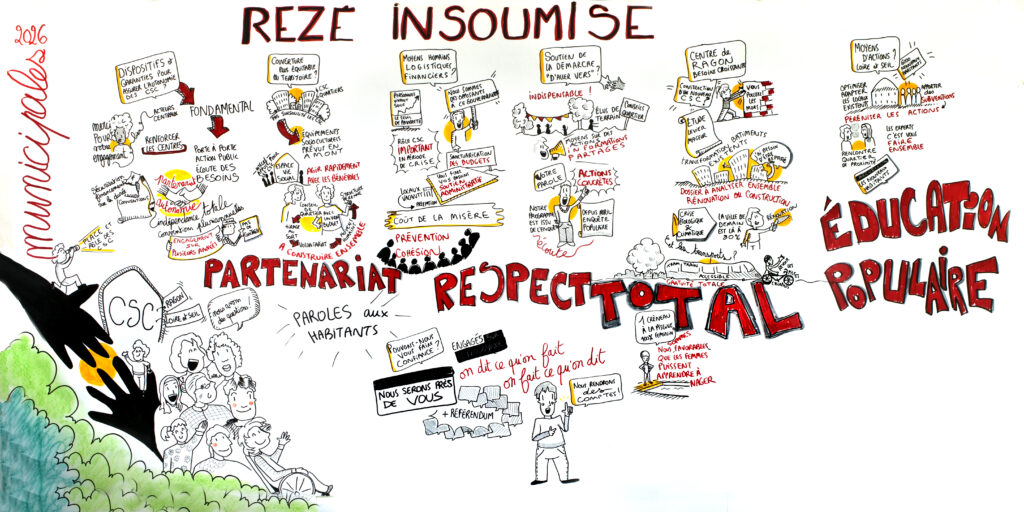 municipales 2026
REZÉ INSOUMISE
DISPOSITIFS et
GARANTIES POUR
ASSURER L'AUTONOMIE
DES CSC ?
ACTEURS
CENTRAUX
merci
Pour
votre
engagement
RENFORCER
LES CENTRES
FONDAMENTAL
PORTE À PORTE
ACTION PUBLIC
ÉCOUTE DES
BESOINS
Partenariat
Autonomie
indépendance totale
ENGAGEMENT SUR
PLUSIEURS ANNÉES
COUVERTURE
PLUS ÉQUITABLE
du TERRITOIRE ?
QUARTIERS
ÉQUIPEMENTS
SOCIOCULTURELS
PRÉVU EN
AMONT
ESPACE
VIE
SOCIALE
AGIR RAPIDEMENT
AVEC LES BÉNÉVOLES
VOLONTARIAT
À CONSTRUIRE ENSEMBLE
MOYENS HUMAINS
LOGISTIQUES
FINANCIERS ?
NOUS SOMMES
DES OPPOSANTS
À CE GOUVERNEMENT
RÔLE CSC
IMPORTANT
EN PÉRIODE
SANCTUARISATION
DES BUDGETS
LOCAUX
VACANTS
SOUTIEN
ADMINISTRATIF
COÛT DE LA MISÈRE
PRÉVENTION
COHÉSION
SOUTIEN DE
LA DÉMARCHE
"D'ALLER VERS" ?
INDISPENSABLE !
ÉLUS DE
TERRAIN
CONSEILS
de QUARTIER
MOYENS SUR DES
ACTIONS
FORMATIONS
PARTAGÉS
NOTRE
PAROLE
ACTIONS
CONCRÈTES
NOTRE
PROGRAMME
EST ISSU
DE L'ENQUÊTE
DEPUIS AVRIL
ENQUÊTE
POPULAIRE
écoute
CENTRE de
RAGON
BESOINS CROISSANTS
CONSTRUCTION
D'UN NOUVEAU
CSC ?
VOUS
POUSSEZ
LES
MURS !
ÉTUDE
LEVIER
MAJEUR
TRANSFORMATION
BÂTIMENTS
EXISTANTS
DOSSIER À ANALYSER ENSEMBLE
RÉNOVATION OU CONSTRUCTION
CRISE
ÉCOLOGIQUE
CLIMATIQUE
LA VILLE DU
DEMAIN
EST LÀ À
80%
RÉNOVATION
et les
transports ?
ACCESSIBLE
GRATUITÉ TOTALE
MOYENS
D'ACTIONS ?
LOIRE et SEIL
OPTIMISER
ADAPTER
LES LOCAUX
EXISTANTS
APPORTER des
SUBVENTIONS
PÉRÉNISER LES ACTIONS
LES EXPERTS
C'EST VOUS
FAIRE
ENSEMBLE
RENCONTRE
QUARTIER
DE PROXIMITÉ
PARTENARIAT
RESPECT
TOTAL
ÉDUCATION
POPULAIRE
CSC
RAGON
LOIRE et SEIL
nous avons
des questions
PAROLES aux
HABITANTS
POUVONS-NOUS
VOUS FAIRE
CONFIANCE ?
ENGAGÉS
on dit ce qu'on fait
on fait ce qu'on dit
NOUS SERONS PRÈS
DE VOUS
+ RÉFÉRENDUM
NOUS RENDRONS
des
COMPTES !
1 CRÉNEAU
À LA PISCINE
100% FÉMININ
NOUS SOMMES
FAVORABLES
QUE LES FEMMES
PUISSENT
APPRENDRE À
NAGER